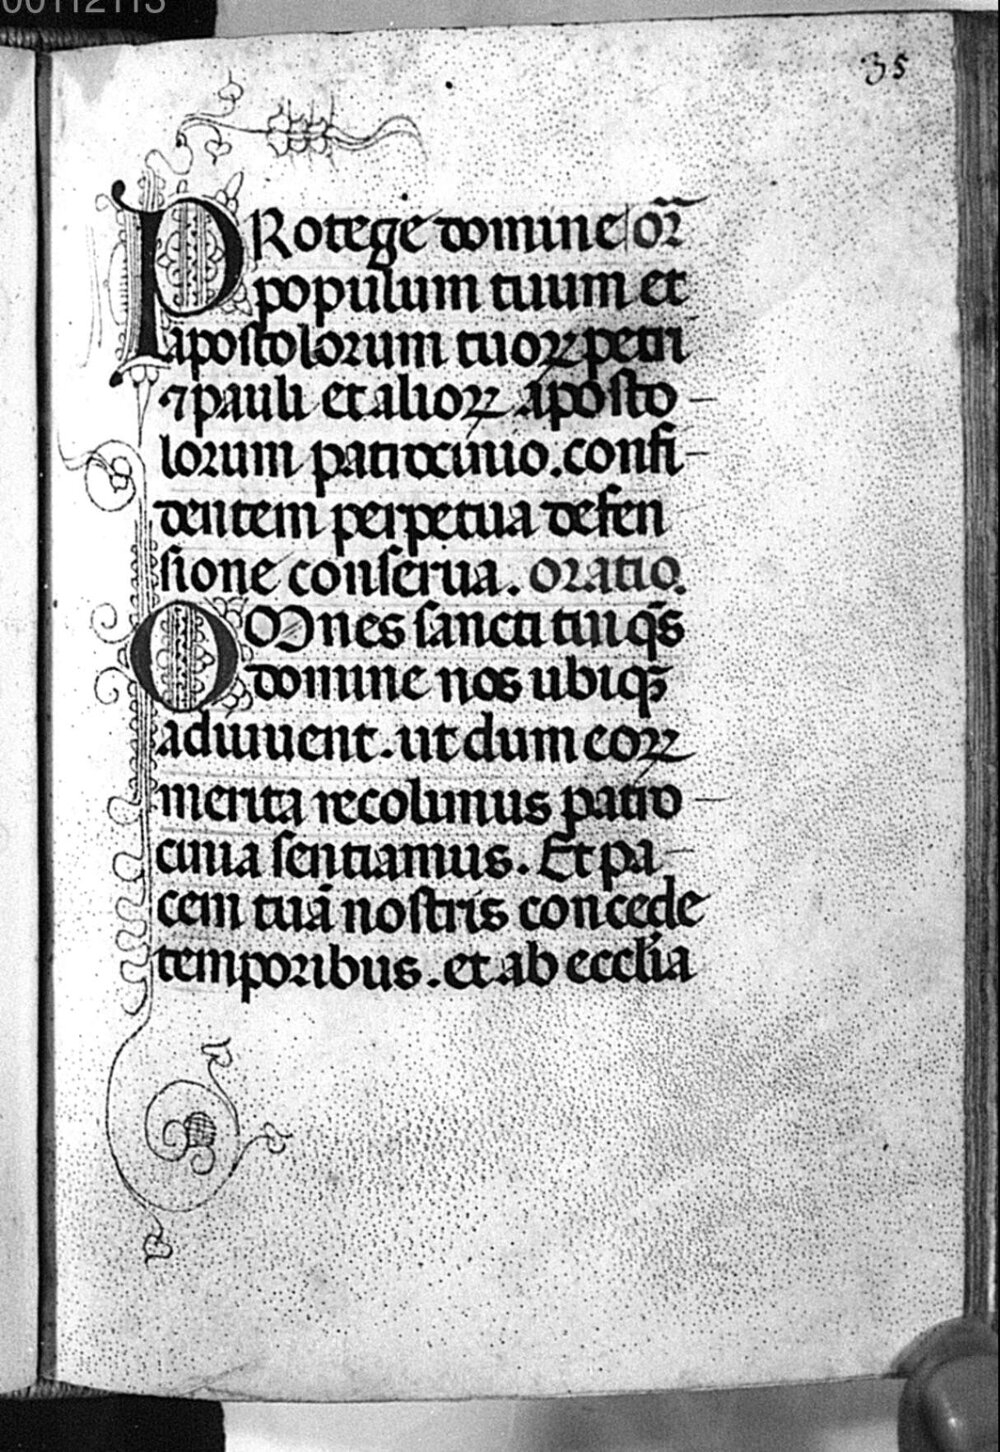 00112113
35
PRotege domine or̅
populum tuum et
apostolorum tuoꝝ petri
⁊ pauli et alioꝝ aposto-
lorum patrocinio. confi-
dentem perpetua defen
sione conserua. oratio.
OMnes sancti tui qs̅
domine nos ubiqꝫ
adiuuent. ut dum eoꝝ
merita recolimus patro-
cinia sentiamus. Et pa-
cem tuā nostris concede
temporibus. et ab eccl̅ia